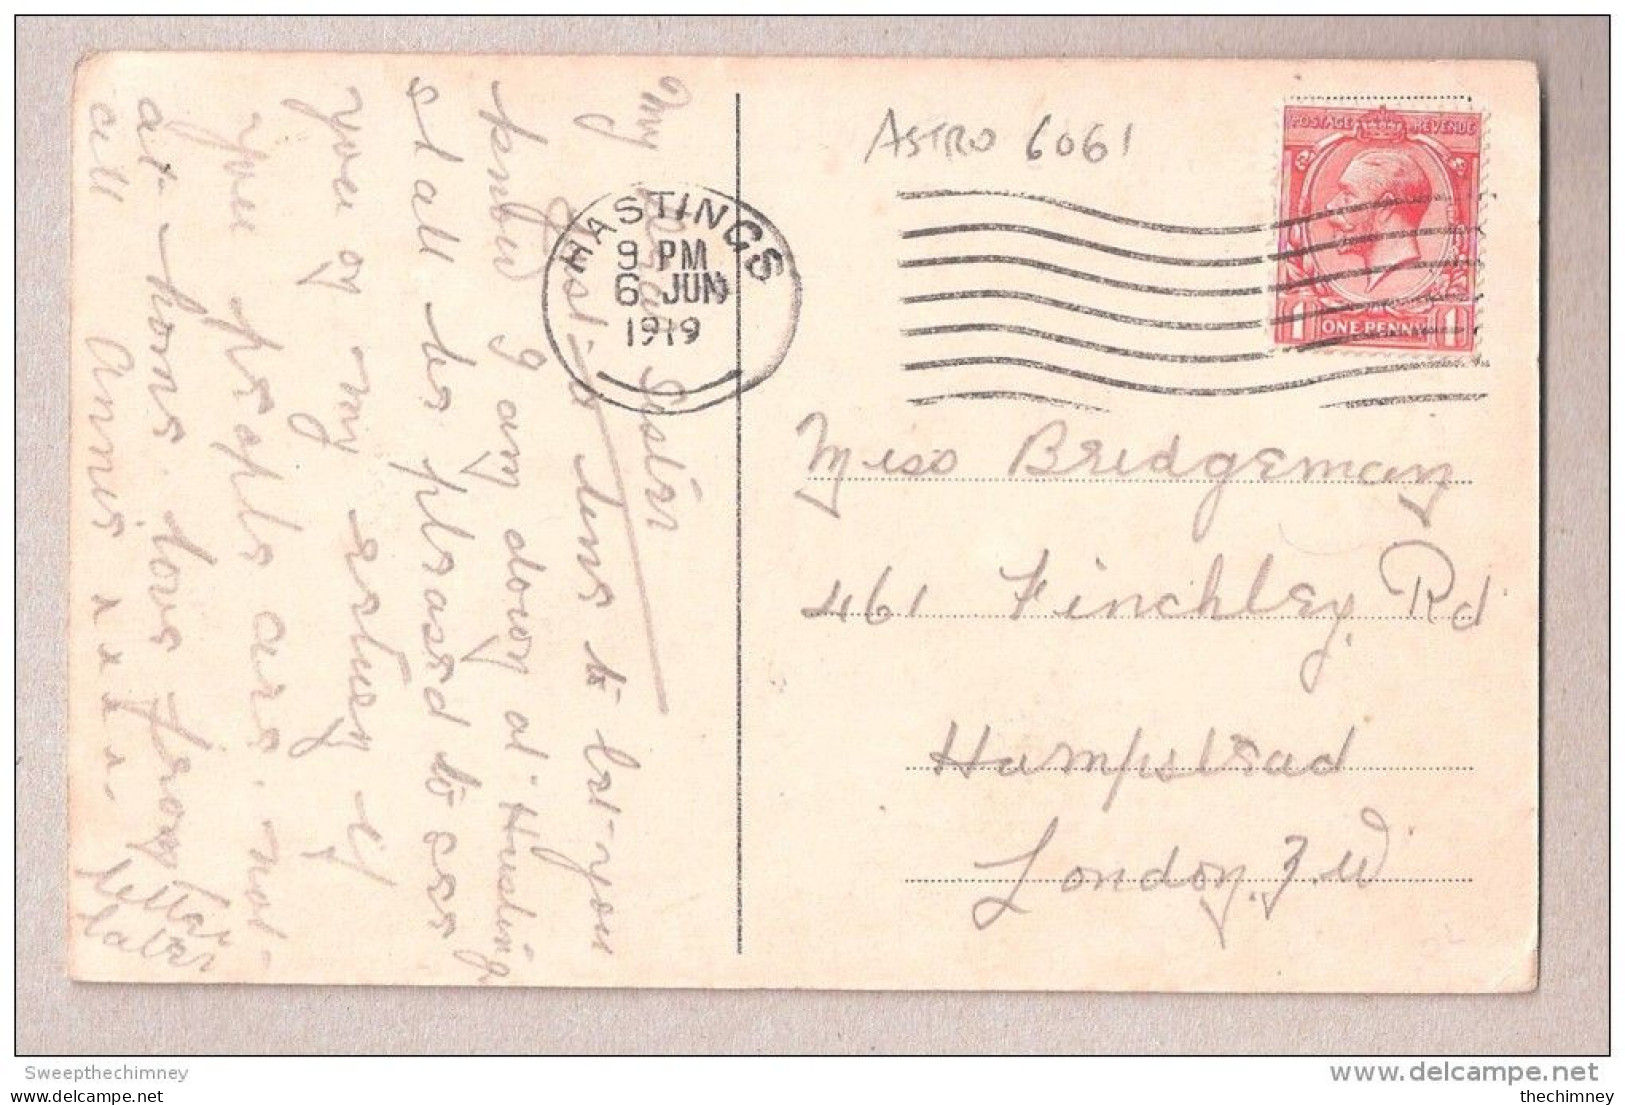 ASTRO 6061
POSTAGE REVENUE
1 ONE PENNY 1
HASTINGS
9 PM
6 JUN
1919
Miss Bridgeman
461 Finchley Rd
Hampstead
London. N.W
My Dear Sister
Just a line to let you
know I am down at Hastings
shall be pleased to see
you on my return if
your people are not
at home. love from
all Annie x x x x
letter
later
Sweepthechimney
www.delcampe.net
thechimney